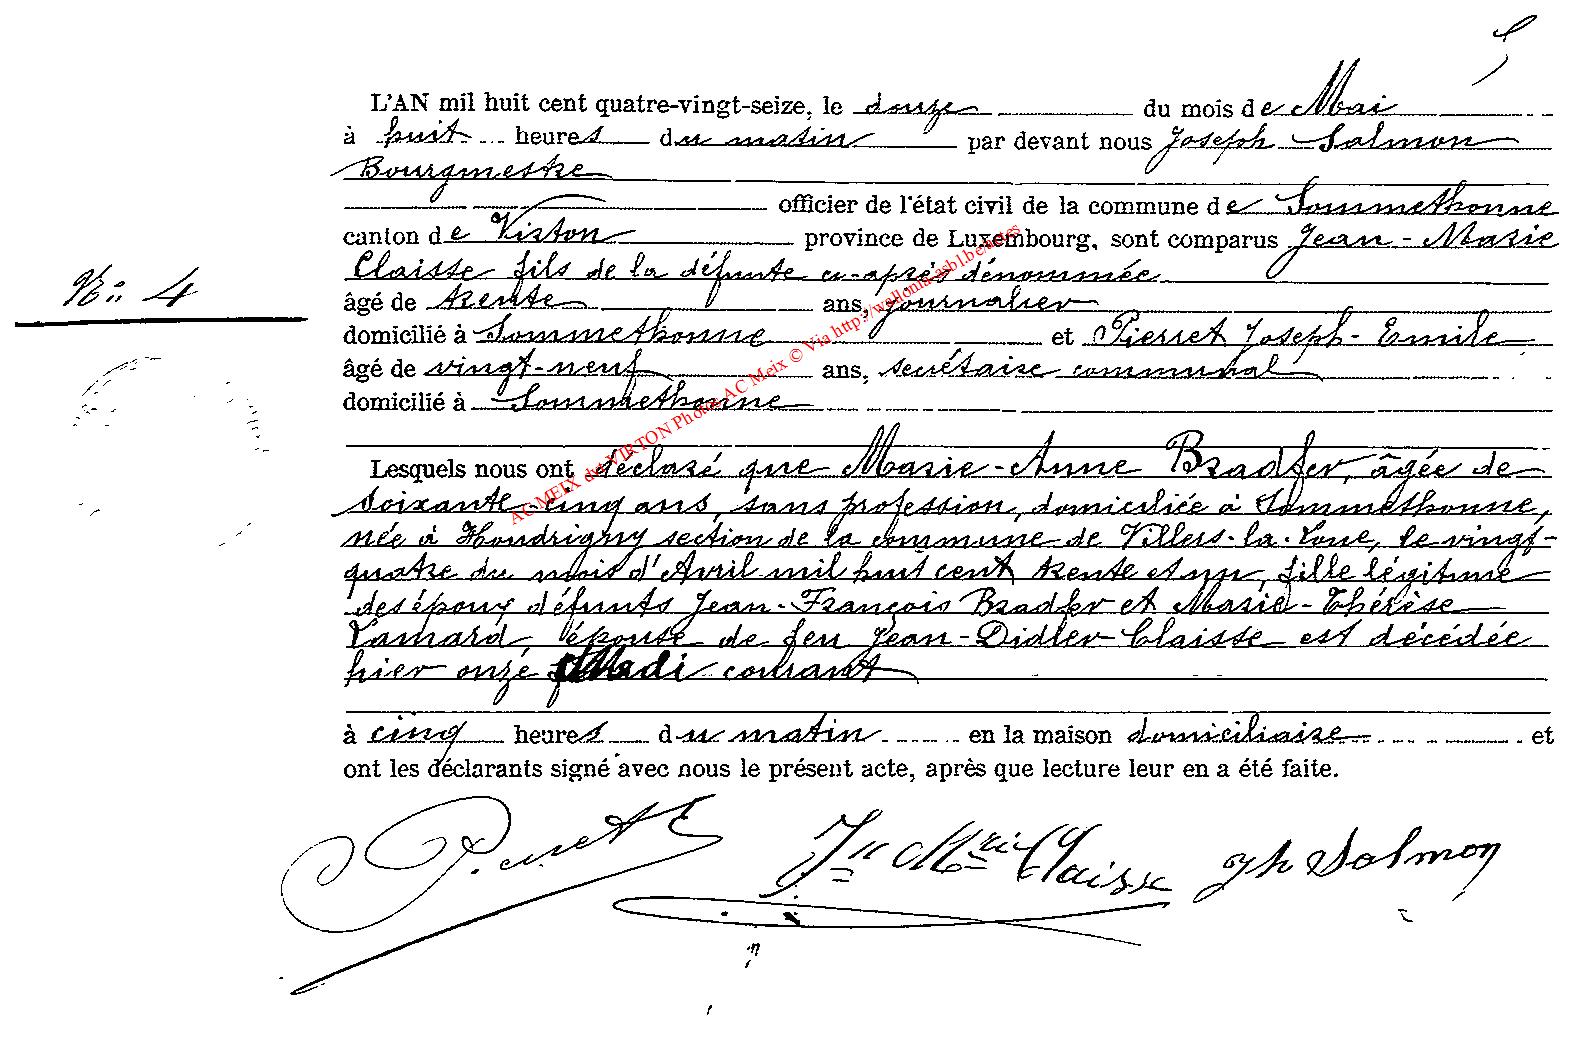 5
L'AN mil huit cent quatre-vingt-seize, le douze du mois de Mai
à huit heures du matin par devant nous Joseph Salmon
Bourgmestre
officier de l'état civil de la commune de Sommethonne
canton de Virton province de Luxembourg, sont comparus Jean-Marie
Claisse fils de la défunte ci-après dénommée
Nº 4
âgé de trente ans, journalier
domicilié à Sommethonne et Pierret Joseph-Emile
âgé de vingt-neuf ans, secrétaire communal
domicilié à Sommethonne
AC MEIX dvt VIRTON Photos AC Meix © Via http://wallonia-asbl.be/actes
Lesquels nous ont déclaré que Marie-Anne Bradfer, âgée de
soixante-cinq ans, sans profession, domiciliée à Sommethonne,
née à Houdrigny section de la commune de Villers-la-Loue, le vingt-
quatre du mois d'Avril mil huit cent trente et un, fille légitime
des époux défunts Jean-François Bradfer et Marie-Thérèse
Lamard, épouse de feu Jean-Didier Claisse est décédée
hier onze courant
à cinq heures du matin en la maison domiciliaire et
ont les déclarants signé avec nous le présent acte, après que lecture leur en a été faite.
Pierret E Jn Mrie Claisse Jh Salmon